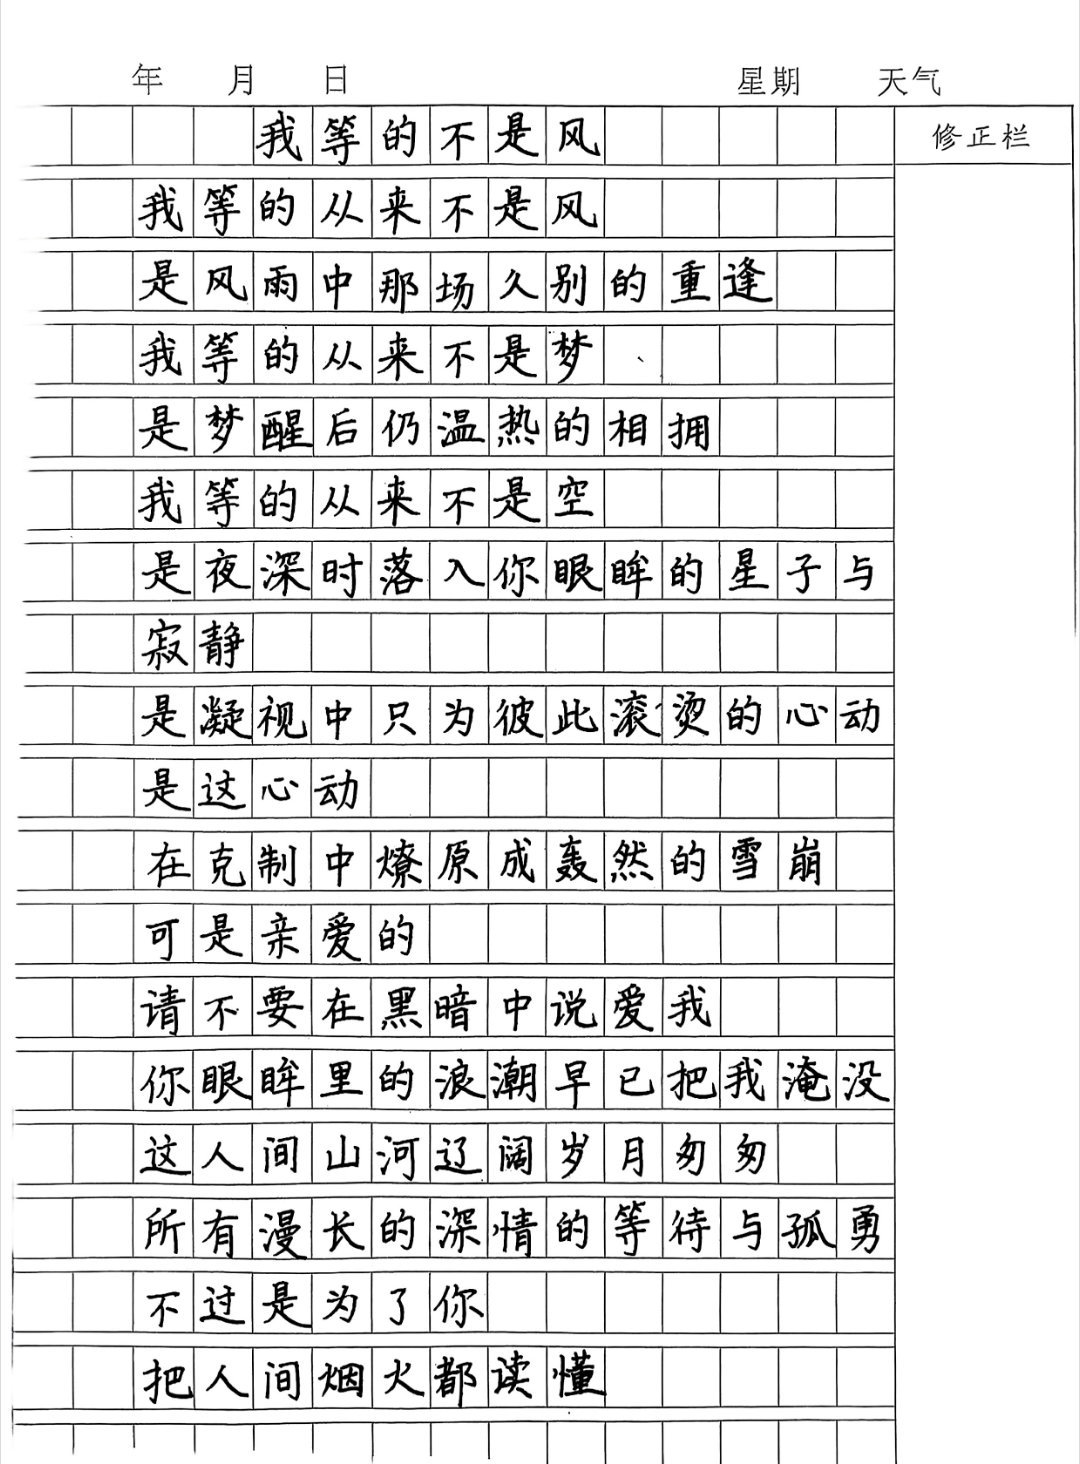 年 月 日 星期 天气
我等的不是风 修正栏
我等的从来不是风
是风雨中那场久别的重逢
我等的从来不是梦
是梦醒后仍温热的相拥
我等的从来不是空
是夜深时落入你眼眸的星子与
寂静
是凝视中只为彼此滚烫的心动
是这心动
在克制中燎原成轰然的雪崩
可是亲爱的
请不要在黑暗中说爱我
你眼眸里的浪潮早已把我淹没
这人间山河辽阔岁月匆匆
所有漫长的深情的等待与孤勇
不过是为了你
把人间烟火都读懂